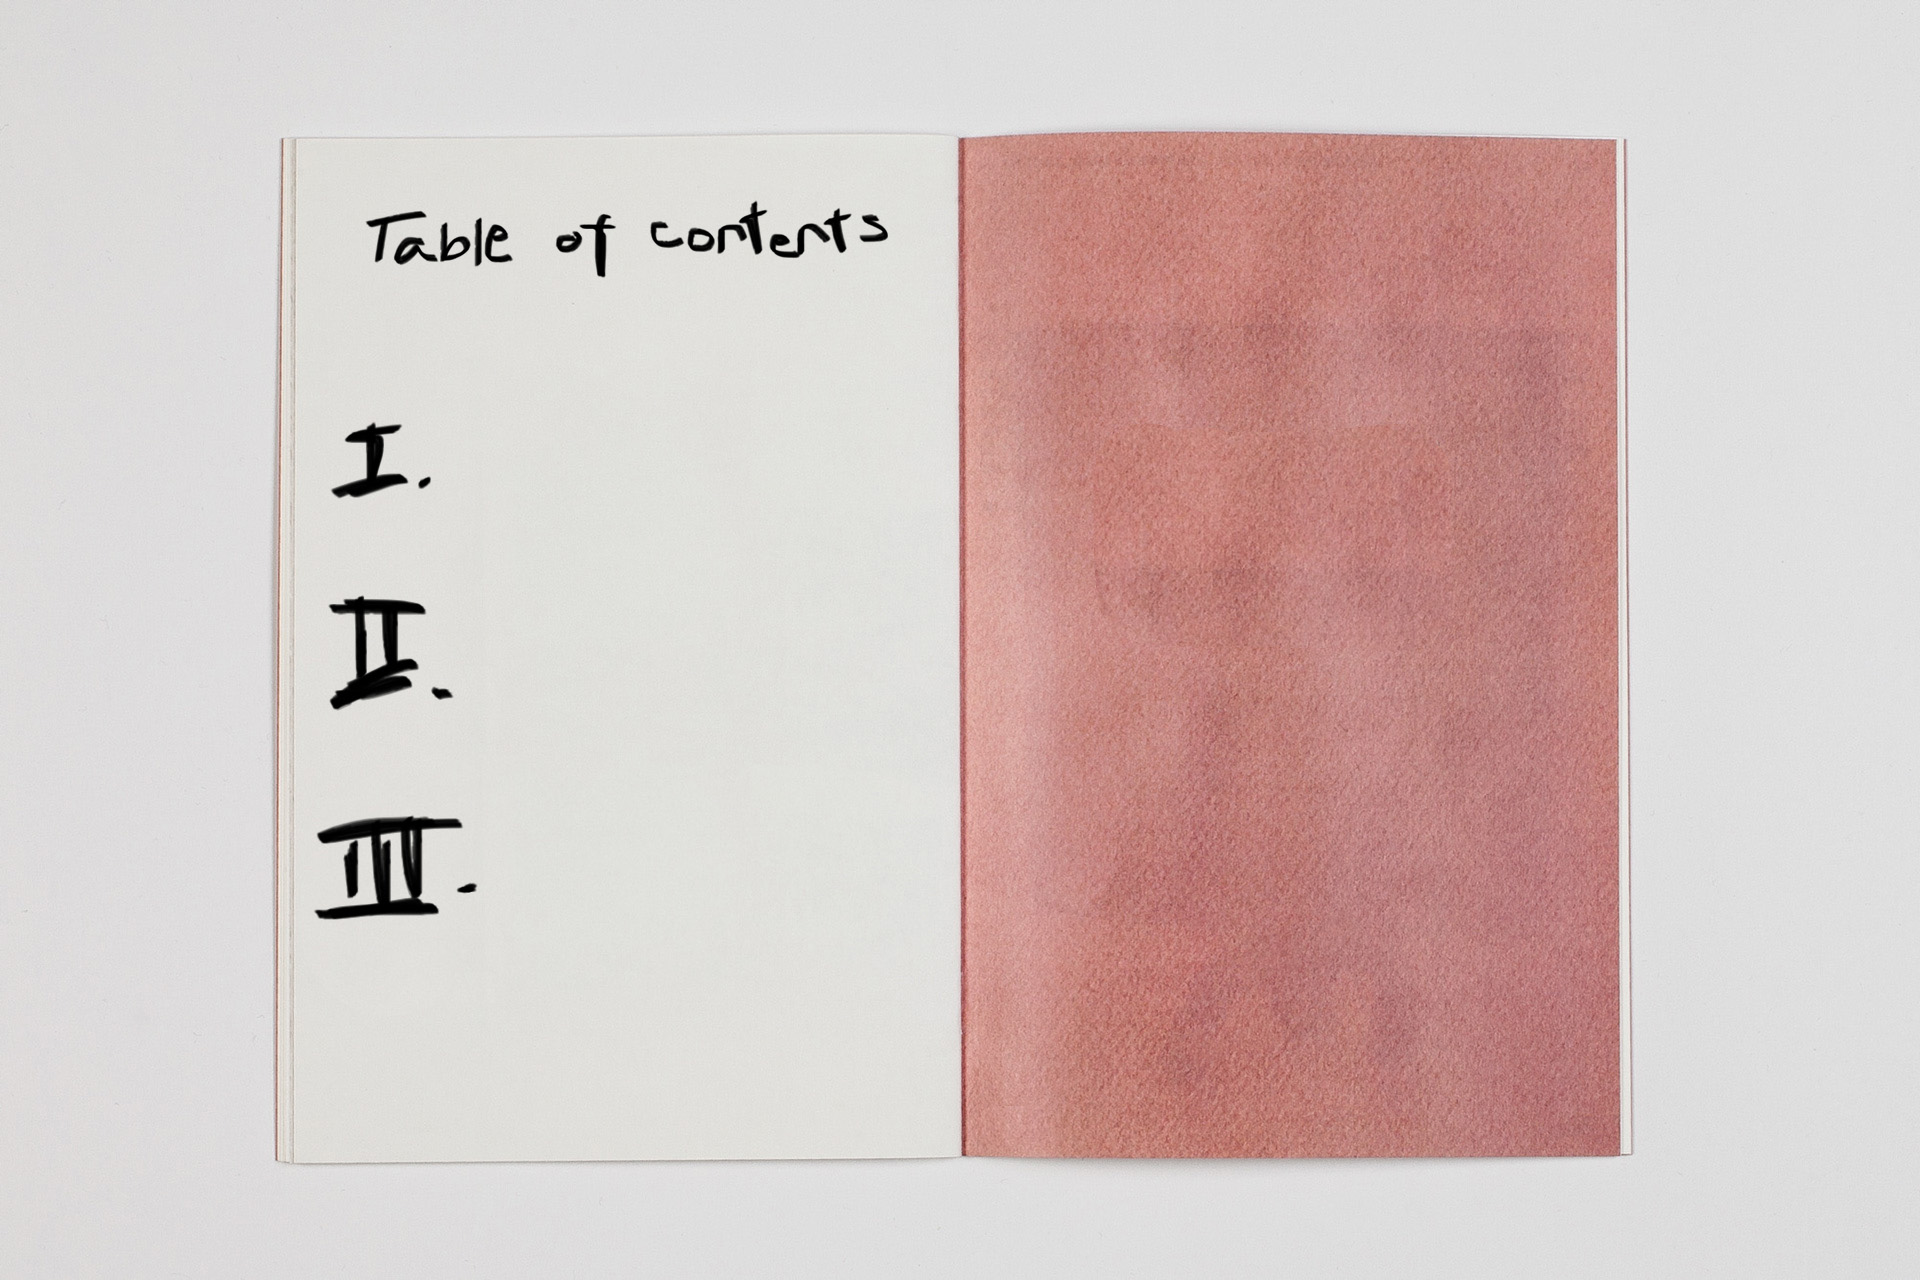 Table of contents
I.
II.
III.